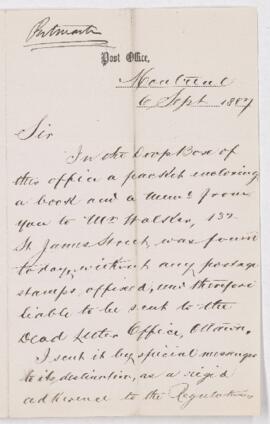 Post Office,
Montreal
6 Sept 1887
Sir
In the Drop Box of
this office a parcel enclosing
a book and a mem: from
you to Mr Walker, 132
St James Street, was found
to-day, without any postage
stamps affixed, and therefore
liable to be sent to the
Dead Letter Office, Ottawa.
I sent it by special messenger
to its destination, as a rigid
adherence to the Regulations